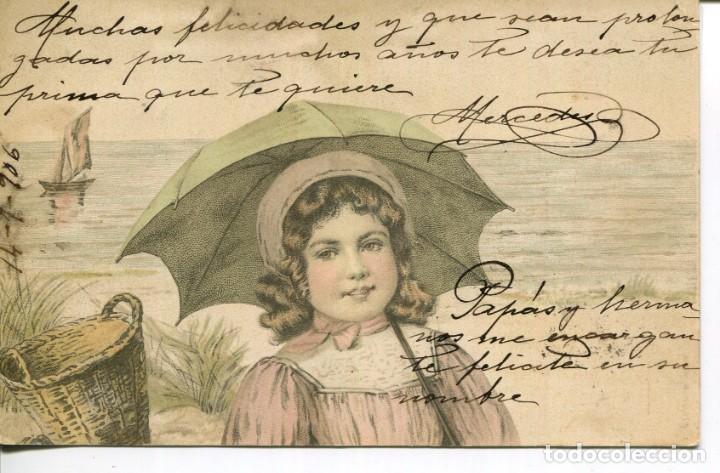 Muchas felicidades y que sean prolon
gadas por muchos años te desea tu
prima que te quiere
Mercedes
14-1-906
Papás y herma
nos me encargan
te felicite en su
nombre
todocoleccion
todocoleccion.net